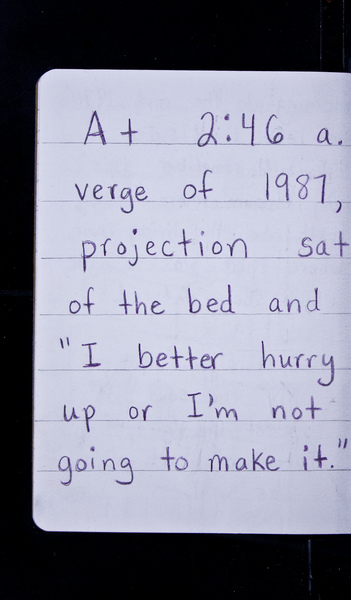 At 2:46 a.
verge of 1987,
projection sat
of the bed and
"I better hurry
up or I'm not
going to make it."